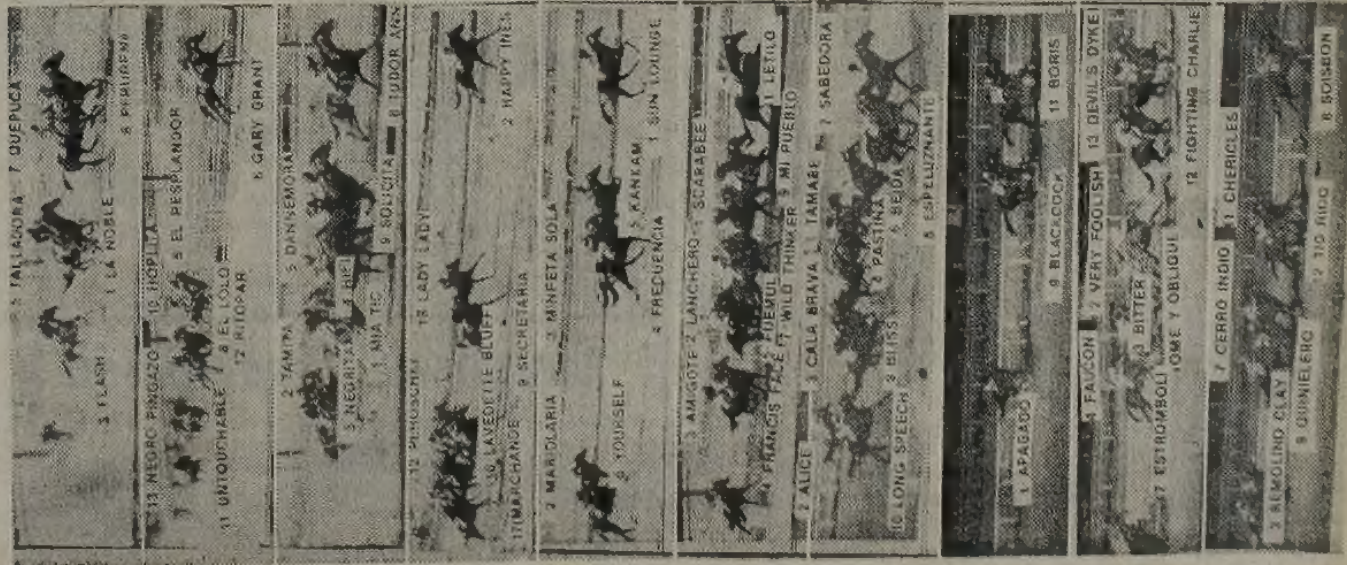 5 TALLADORA 7 QUEPUCA
3 FLASH 1 LA NOBLE
13 NEGRO PINGAZO 10 HOPLITA
11 UNTOUCHABLE 8 EL LOLO 5 EL RESPLANDOR
12 RITOPAR 6 GARY GRANT
2 TAMINA 5 DANNEMORA
3 NEGRITA 4 RIEL
9 SOLICITA 8 TUDOR ANN
13 LADY LADY
10 LAVEDETTE BLUEF 2 HAPPY INES
MARCHANDE 9 SECRETARIA
2 MARIOLARIA 3 MINFETA SOLA
6 YOURSELF 5 KANKAM
4 FRECUENCIA 1 SUN LOUNGE
3 AMIGOTE 2 LANCHERO SCARABEE
FRANCIS FACE HUEMUL 11 LETILO
WILD THINKER 9 MI PUEBLO
2 ALICE 3 CALA BRAVA TAMABE 7 SABEDORA
10 LONG SPEECH 9 BLISS 4 PASTINA
6 BEIDA
8 ESPELUZNANTE
1 APAGADO 9 BLACKCOCK 11 BORIS
4 FAUCON 2 VERY FOOLISH 13 DEVIL'S DYKE
17 ESTROMBOLI 3 BITTER
TOME Y OBLIGUE 12 FIGHTING CHARLIE
7 CERRO INDIO 11 CHERICLES
3 REMOLINO CLAY
9 QUINIELERO 12 TIO RICO 8 BOISBON